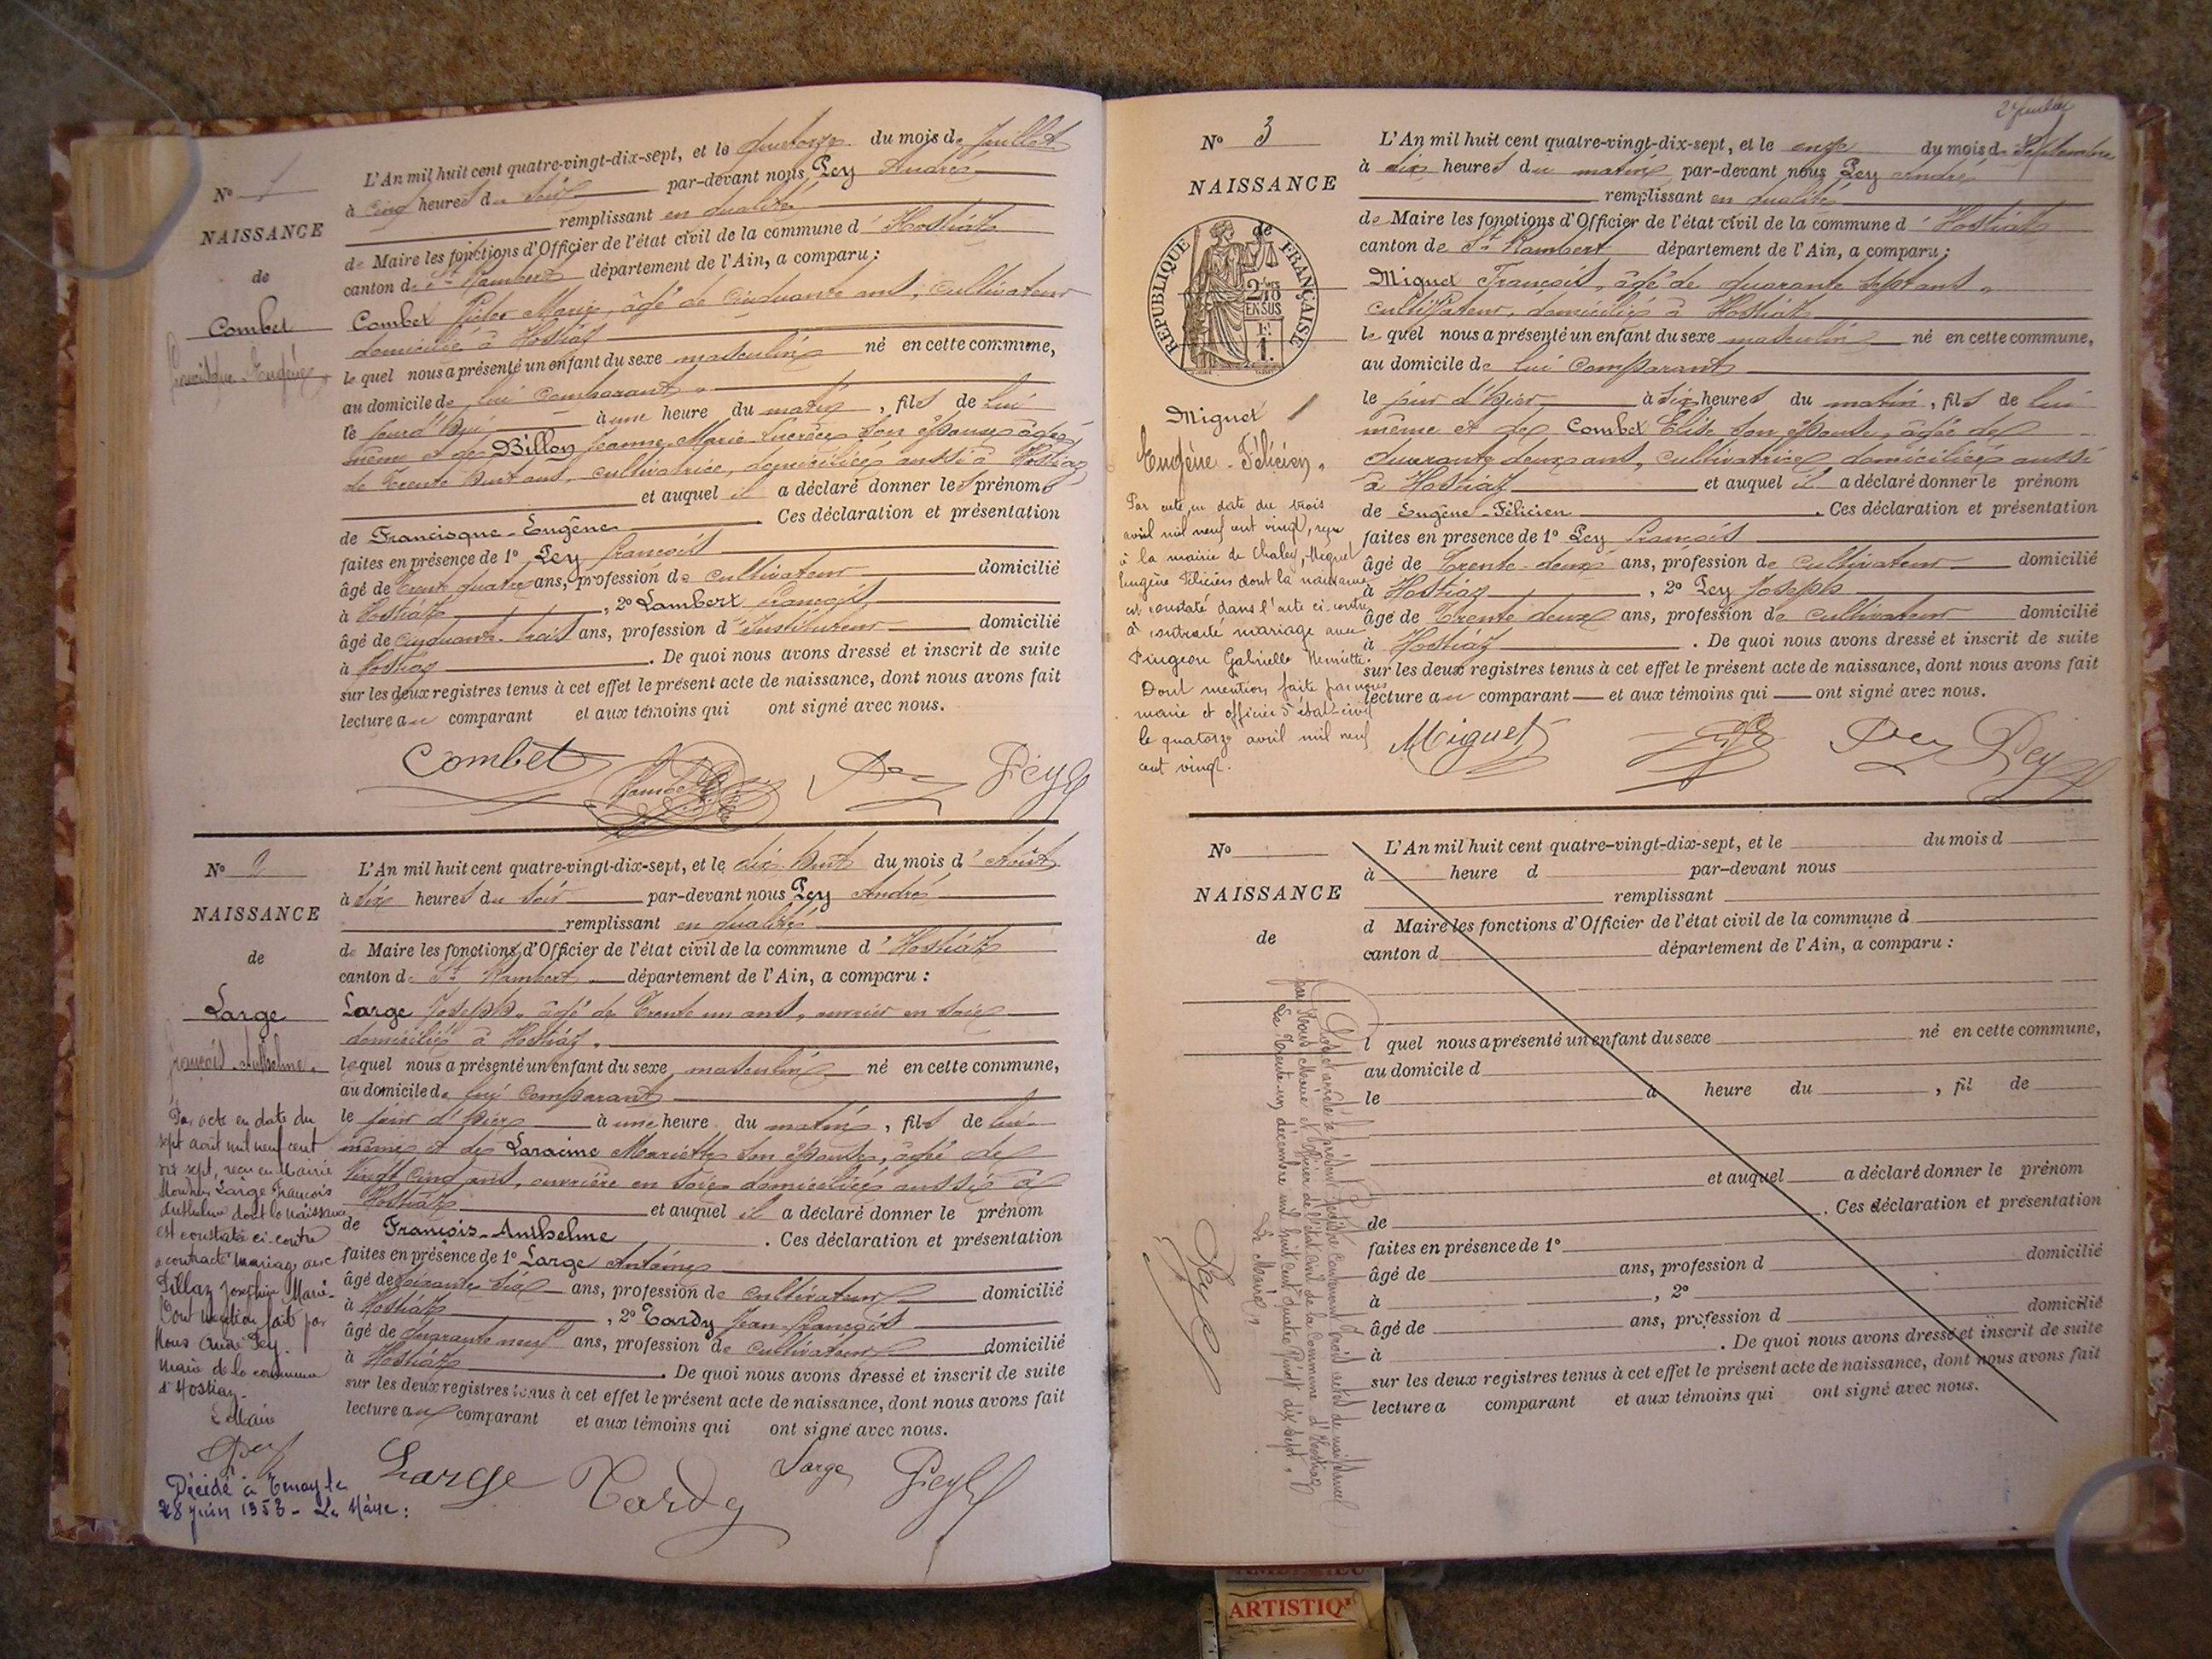 N° 1
NAISSANCE
de
Combet
Francisque-Eugène
L'An mil huit cent quatre-vingt-dix-sept, et le quatorze du mois de Juillet
à cinq heures du soir par-devant nous Pey André
remplissant en qualité
de Maire les fonctions d'Officier de l'état civil de la commune d'Hostiaz
canton de St Rambert département de l'Ain, a comparu :
Combet Victor Marie, âgé de cinquante ans, cultivateur
domicilié à Hostiaz
lequel nous a présenté un enfant du sexe masculin né en cette commune,
au domicile de lui comparant
le jourd'hui à une heure du matin, fils de lui
même et de Billon Jeanne Marie Lucrèce son épouse âgée
de trente huit ans, cultivatrice, domiciliée aussi à Hostiaz
et auquel il a déclaré donner les prénoms
de Francisque-Eugène. Ces déclaration et présentation
faites en présence de 1° Pey François
âgé de trente quatre ans, profession de cultivateur domicilié
à Hostiaz, 2° Lambert François
âgé de cinquante-trois ans, profession d'instituteur domicilié
à Hostiaz. De quoi nous avons dressé et inscrit de suite
sur les deux registres tenus à cet effet le présent acte de naissance, dont nous avons fait
lecture au comparant et aux témoins qui ont signé avec nous.
Combet Lambert Pey Pey
N° 2
NAISSANCE
de
Large
François-Anthelme.
L'An mil huit cent quatre-vingt-dix-sept, et le dix-huit du mois d'Août
à six heures du soir par-devant nous Pey André
remplissant en qualité
de Maire les fonctions d'Officier de l'état civil de la commune d'Hostiaz
canton de St Rambert département de l'Ain, a comparu :
Large Joseph, âgé de trente un ans, ouvrier en soie
domicilié à Hostiaz.
lequel nous a présenté un enfant du sexe masculin né en cette commune,
au domicile de lui comparant
le jour d'hier à une heure du matin, fils de lui-
même et de Laracine Mariette son épouse, âgée de
vingt cinq ans, ouvrière en soie domiciliée aussi à
Hostiaz et auquel il a déclaré donner le prénom
de François-Anthelme. Ces déclaration et présentation
faites en présence de 1° Large Antoine
âgé de soixante six ans, profession de cultivateur domicilié
à Hostiaz, 2° Tardy Jean-François
âgé de quarante neuf ans, profession de cultivateur domicilié
à Hostiaz. De quoi nous avons dressé et inscrit de suite
sur les deux registres tenus à cet effet le présent acte de naissance, dont nous avons fait
lecture au comparant et aux témoins qui ont signé avec nous.
Large Tardy Large Pey
Par acte en date du
sept août mil neuf cent
dix sept, reçu en Mairie
Large François
Anthelme dont la naissance
est constatée ci-contre
a contracté mariage avec
Pillaz Joséphine Marie.
Dont mention fait par
Nous André Pey.
Maire de la commune
d'Hostiaz.
Le Maire
Pey
Décédé à Tenay le
28 juin 1953 - Le Maire :
N° 3
NAISSANCE
RÉPUBLIQUE FRANÇAISE
2/10
EN SUS
Miguet
Eugène-Félicien.
2 Juillet
L'An mil huit cent quatre-vingt-dix-sept, et le onze du mois de Septembre
à dix heures du matin par-devant nous Pey André
remplissant en qualité
de Maire les fonctions d'Officier de l'état civil de la commune d'Hostiaz
canton de St Rambert département de l'Ain, a comparu :
Miguet François, âgé de quarante sept ans,
cultivateur, domicilié à Hostiaz
lequel nous a présenté un enfant du sexe masculin né en cette commune,
au domicile de lui comparant
le jour d'hier à six heures du matin, fils de lui
même et de Combet Élise son épouse, âgée de
quarante deux ans, cultivatrice domiciliée aussi
à Hostiaz et auquel il a déclaré donner le prénom
de Eugène-Félicien. Ces déclaration et présentation
faites en présence de 1° Pey François
âgé de trente-deux ans, profession de cultivateur domicilié
à Hostiaz, 2° Pey Joseph
âgé de trente deux ans, profession de cultivateur domicilié
à Hostiaz. De quoi nous avons dressé et inscrit de suite
sur les deux registres tenus à cet effet le présent acte de naissance, dont nous avons fait
lecture au comparant et aux témoins qui ont signé avec nous.
Miguet Pey Pey
Par acte en date du trois
avril mil neuf cent vingt, reçu
à la mairie de Chaley, Miguet
Eugène Félicien dont la naissance
est constaté dans l'acte ci-contre
à contracté mariage avec
Pingeon Gabrielle Henriette.
Dont mention faite par nous
maire et officier d'état-civil
le quatorze avril mil neuf
cent vingt.
N°
NAISSANCE
de
L'An mil huit cent quatre-vingt-dix-sept, et le du mois d
à heure d par-devant nous
remplissant
d Maire les fonctions d'Officier de l'état civil de la commune d
canton d département de l'Ain, a comparu :
l quel nous a présenté un enfant du sexe né en cette commune,
au domicile d
le à heure du , fil de
et auquel a déclaré donner le prénom
de . Ces déclaration et présentation
faites en présence de 1°
âgé de ans, profession d domicilié
à , 2°
âgé de ans, profession d domicilié
à . De quoi nous avons dressé et inscrit de suite
sur les deux registres tenus à cet effet le présent acte de naissance, dont nous avons fait
lecture a comparant et aux témoins qui ont signé avec nous.
Clos et arrêté le présent registre contenant trois actes de naissance
par Nous Maire et Officier de l'état civil de la commune d'Hostiaz
Le trente-un décembre mil huit cent quatre vingt dix sept.
Le Maire,
Pey
ARTISTIQ